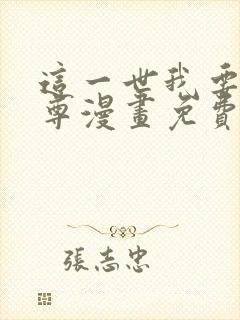 這一世我要
尊漫畫免費
張志忠